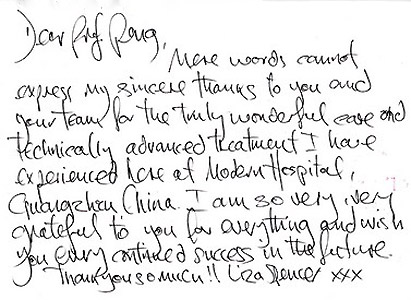 Dear Prof. Peng,
Mere words cannot
express my sincere thanks to you and
your team for the truly wonderful care and
technically advanced treatment I have
experienced here at Modern Hospital,
Guangzhou China. I am so very, very
grateful to you for everything and wish
you every continued success in the future.
Thank you so much!! Liza Spencer xxx